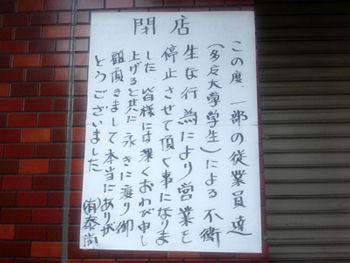 閉店
この度、一部の従業員達
(多摩大学学生)による不衛
生な行為により営業を
停止させて頂く事になりま
した 皆様には深くおわび申し
上げると共に永きに渡り御
顧頂きまして本当にありが
とうございました
泰尚